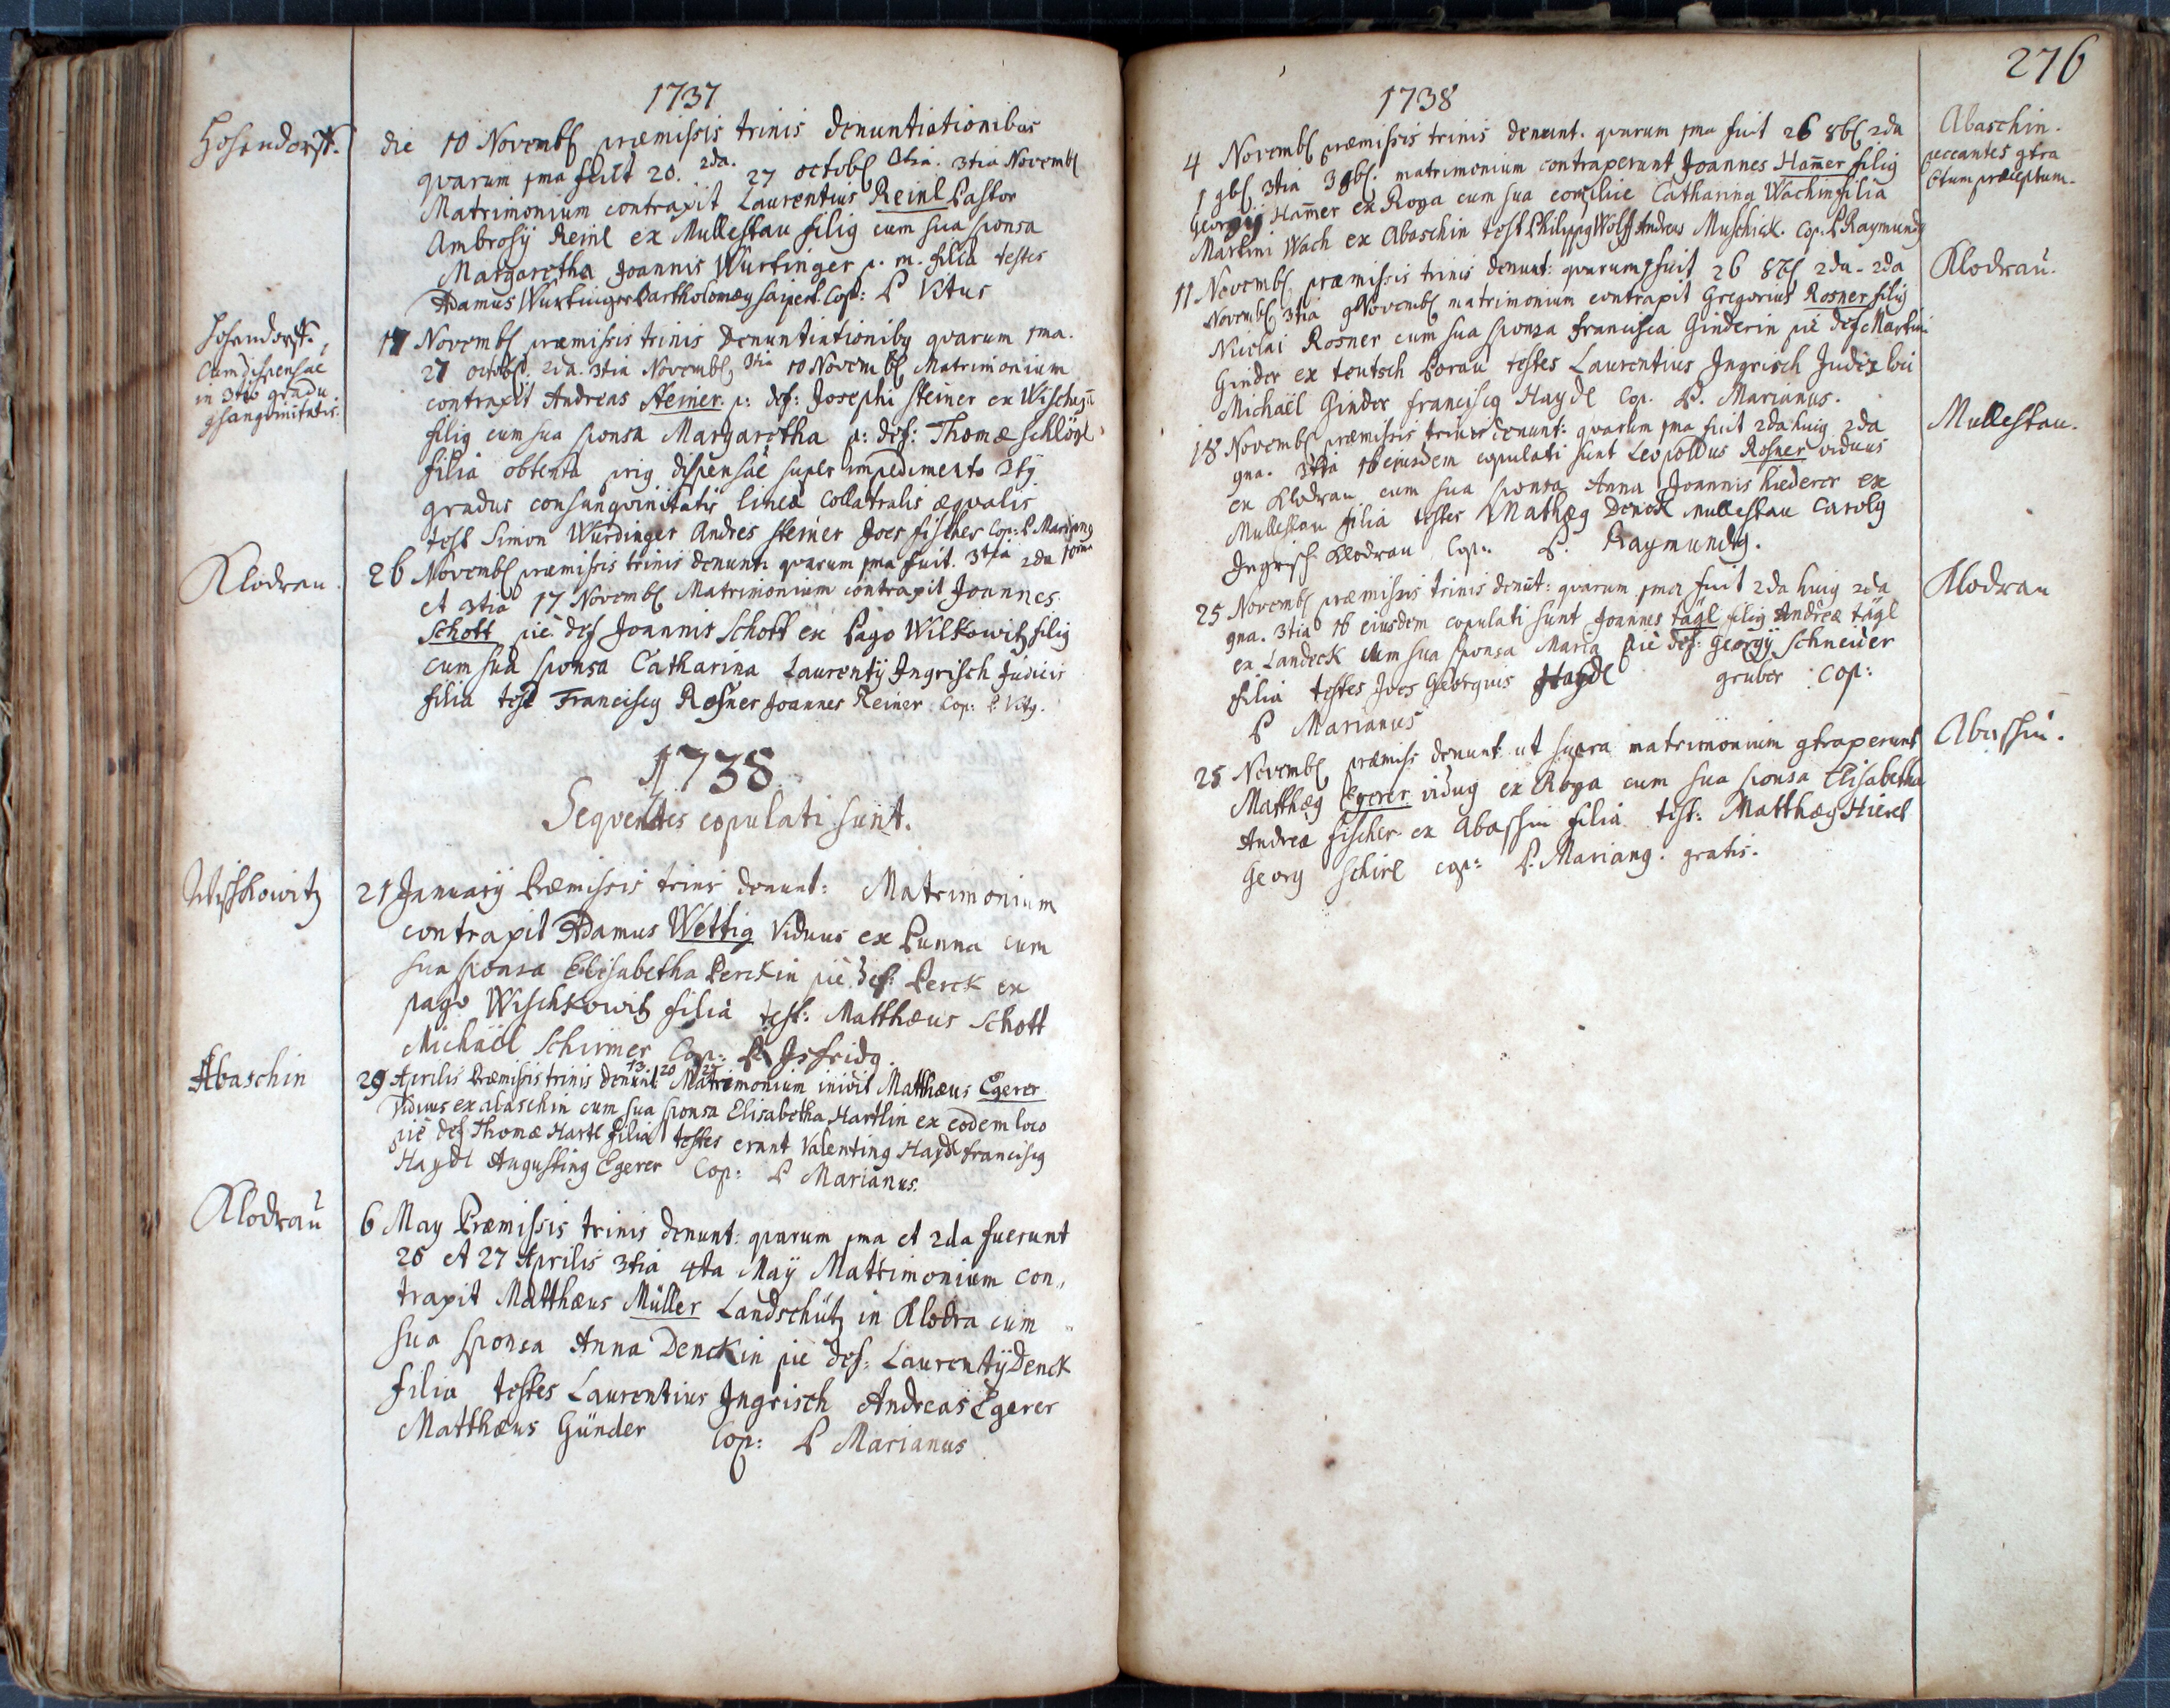 1737
Hosendorff.
die 10 Novemb. præmissis trinis denuntiationibus
quarum 1ma fuit 20. 2da. 27 octob. 3tia. 3tia Novemb.
Matrimonium contraxit Laurentius Reinl Pastor
Ambrosÿ Reinl ex Mullestau filig cum sua sponsa
Margaretha Joannis Wurtinger p. m. filia testes
Adamus Wurtinger Bartholomeg Cop: P Vitus
Hosendorff.
Cum dispensãe
in 3tio gradu
gsanguinitatis.
17 Novemb. præmissis trinis Denuntiationibg quarum 1ma.
27 octob. 2da. 3tia Novemb. 3tia 10 Novemb. Matrimonium
contraxit Andreas Steiner p: def: Josephi Steiner ex
filig cum sua sponsa Margaretha p: def: Thomæ Schlögl
filia obtenta prig dispensãe super impedimento 3tÿ
gradus consanqvinitatis lineæ Collatralis æqvalis
test Simon Wurdinger Andres Steiner Joes Fischer Cop: P. Mariang
Klodrau.
26 Novemb. præmissis trinis denunt: quarum 1ma fuit. 3tia 2da 10ma
et 3tia 17 Novemb. Matrimonium contraxit Joannes
Schott piè def Joannis Schott ex Pago Wilkowitz filig
cum sua sponsa Catharina Laurentÿ Ingrisch Judicis
filia test Franciscg Rosner Joannes Reiner Cop: P Vitg.
1738
Seqventes copulati sunt.
Wischkowitz
21 Januarÿ Præmissis trinis denunt: Matrimonium
contraxit Adamus Wettig Viduus ex Punna cum
sua sponsa Elisabetha Perckin piè def: Perck ex
pago Wischkowitz filia test: Matthæus Schott
Michaël Schirmer Cop: P. Isfridg.
Abaschin
13. 20 27
29 Aprilis Præmissis trinis denunt: Matrimonium inivit Matthæus Egerer
Viduus ex abaschin cum sua sponsa Elisabetha Hartlin ex eodem loco
piè def Thomæ Hartl filia testes erant Valenting Haydl franciscg
Haydl Augusting Egerer Cop: P Marianus.
Klodraú
6 May Præmissis trinis denunt: quarum 1ma et 2da fuerunt
26 et 27 Aprilis 3tia 4ta Maÿ Matrimonium con„
traxit Matthæus Müller Landschütz in Klodra cum
sua sponsa Anna Denckin piè def: Laurentÿ Denck
filia testes Laurentius Ingrisch Andreas Egerer
Matthæus Günder Cop: P Marianus
276
1738
Abaschin.
peccantes gtra
6tum præceptum.
4 Novemb. præmissis trinis denunt. quarum 1ma fuit 26 8b. 2da
1 9b. 3tia 3 9b. matrimonium contraxerunt Joannes Ham̃er filig
Georgÿ Ham̃er ex Roya cum sua complice Catharina Wachin filia
Martini Wach ex Abaschin test Philippg Wolff Andreas Muschick. Cop. P Raymundg
Klodrau.
11 Novemb. præmissis trinis denunt: quarum fuit 26 8b. 2da - 2da
Novemb. 3tia 9 Novemb. matrimonium contraxit Gregorius Rosner filig
Nicolai Rosner cum sua sponsa francisca Ginderin piè def Martini
Ginder ex teutsch Borau testes Laurentius Ingrisch Judex loci
Michaël Ginder franciscg Haydl Cop. P. Marianus.
Mullestau.
18 Novemb. præmissis trinis denunt: quarum 1ma fuit 2da huig 2da
9na. 3tia 16 eiusdem copulati sunt Leopoldus Rosner viduus
ex Klodrau cum sua sponsa Anna Joannis Liederer ex
Mullestau filia testes Mathæg Denck Mullestau Carolg
Ingrisch Klodrau Cop: P. Raymundg.
Klodrau
25 Novemb. præmissis trinis denũt: quarum 1ma fuit 2da huig 2da
9na. 3tia 16 eiusdem copulati sunt Joannes tägl filig Andreæ tägl
ex Landeck cum sua sponsa Maria piè def: Georgÿ Schneider
filia testes Joes Georgius Haydl gruber Cop:
P Marianus
Abaschin.
25 Novemb. præmiss denunt ut supra matrimonium gtraxerunt
Matthæg Egerer vidug ex Roya cum sua sponsa Elisabetha
Andreæ Fischer ex Abaschin filia test: Matthæg Hierl
Georg Schirl cop: P. Mariang. gratis.